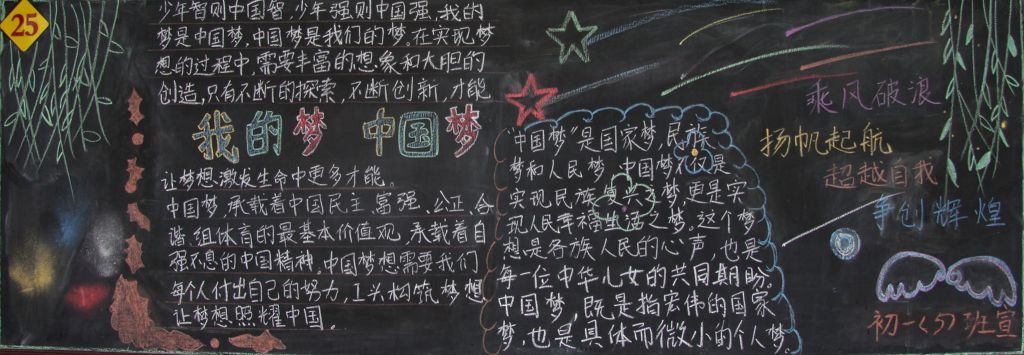 25
少年智则中国智，少年强则中国强，我的
梦是中国梦，中国梦是我们的梦。在实现梦
想的过程中，需要丰富的想象和大胆的
创造，只有不断的探索，不断创新，才能
我的梦 中国梦
让梦想激发生命中更多才能。
中国梦，承载着中国民主、富强、公正、合
谐、组体育的最基本价值观，承载着自
强不息的中国精神。中国梦想需要我们
每个人付出自己的努力，工兴松筑梦想
让梦想照耀中国。
“中国梦”是国家梦，民族
梦和人民梦，中国梦不仅是
实现民族复兴之梦，更是实
现人民幸福生活之梦。这个梦
想是各族人民的心声，也是
每一位中华儿女的共同期盼。
中国梦，既是指宏伟的国家
梦，也是具体而微小的个人梦。
乘风破浪
扬帆起航
超越自我
争创辉煌
初一(5)班宣